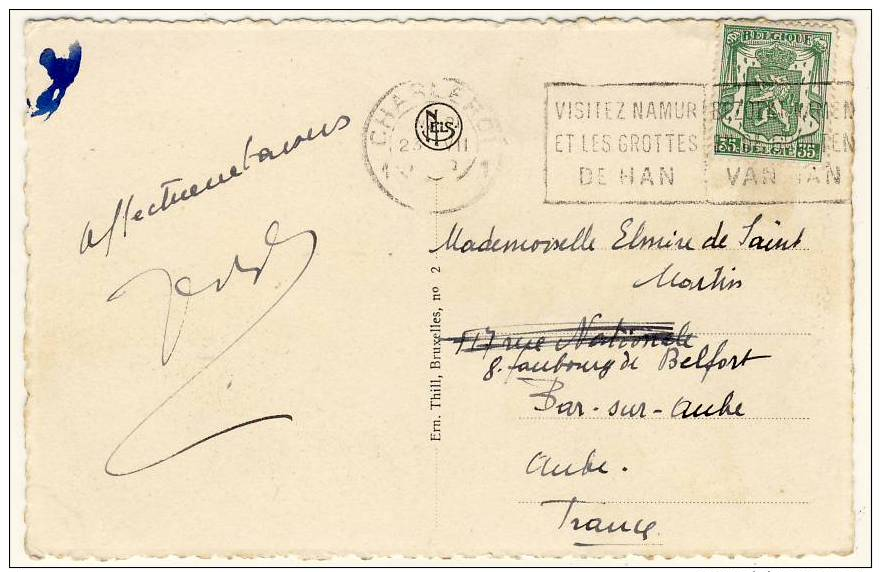 BELGIQUE
35 BELGIE 35
CHARLEROI
23 VII
1 1
NELS
VISITEZ NAMUR
ET LES GROTTES
DE HAN
VAN HAN
Affectueux baisers
Mademoiselle Elmire de Saint
Martin
117 rue Nationale
8. faubourg de Belfort
Bar-sur-Aube
Aube.
France
Ern. Thill, Bruxelles, no 2